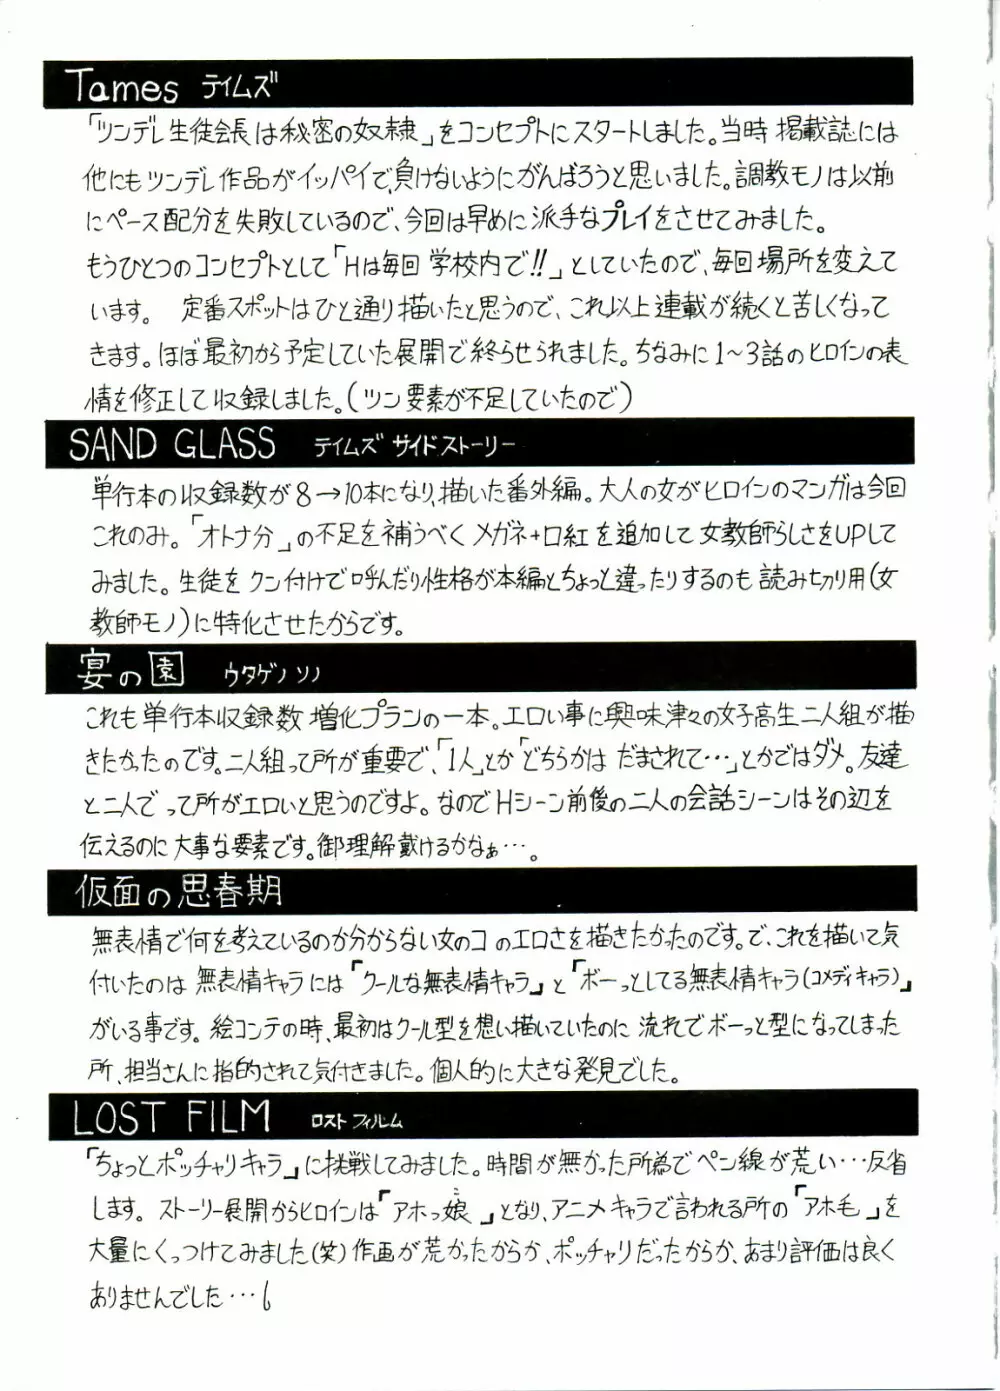 Tames テイムズ
「ツンデレ生徒会長は秘密の奴隷」をコンセプトにスタートしました。当時掲載誌には
他にもツンデレ作品がイッパイで、負けないようにがんばろうと思いました。調教モノは以前
にペース配分を失敗しているので、今回は早めに派手なプレイをさせてみました。
もうひとつのコンセプトとして「Hは毎回学校内で!!」としていたので、毎回場所を変えて
います。 定番スポットはひと通り描いたと思うので、これ以上連載が続くと苦しくなって
きます。ほぼ最初から予定していた展開で終らせられました。ちなみに1〜3話のヒロインの表
情を修正して収録しました。(ツン要素が不足していたので)
SAND GLASS テイムズ サイドストーリー
単行本の収録数が8→10本になり、描いた番外編。大人の女がヒロインのマンガは今回
これのみ。「オトナ分」の不足を補うべくメガネ+口紅を追加して女教師らしさをUPして
みました。生徒をクン付けで呼んだり性格が本編とちょっと違ったりするのも読み切り用(女
教師モノ)に特化させたからです。
宴の園 ウタゲノソノ
これも単行本収録数増化プランの一本。エロい事に興味津々の女子高生二人組が描
きたかったのです。二人組って所が重要で、「1人」とか「どちらかはだまされて…」とかではダメ。友達
と二人でって所がエロいと思うのですよ。なのでHシーン前後の二人の会話シーンはその辺を
伝えるのに大事な要素です。御理解戴けるかなぁ…。
仮面の思春期
無表情で何を考えているのか分からない女のコのエロさを描きたかったのです。で、これを描いて気
付いたのは無表情キャラには「クールな無表情キャラ」と「ボーっとしてる無表情キャラ(コメディキャラ)」
がいる事です。絵コンテの時、最初はクール型を想い描いていたのに流れでボーっと型になってしまった
所、担当さんに指的されて気付きました。個人的に大きな発見でした。
LOST FILM ロスト フィルム
「ちょっとポッチャリキャラ」に挑戦してみました。時間が無かった所為でペン線が荒い…反省
します。ストーリー展開からヒロインは「アホっ娘」となり、アニメキャラで言われる所の「アホ毛」を
大量にくっつけてみました(笑)作画が荒かったからか、ポッチャリだったからか、あまり評価は良く
ありませんでした…